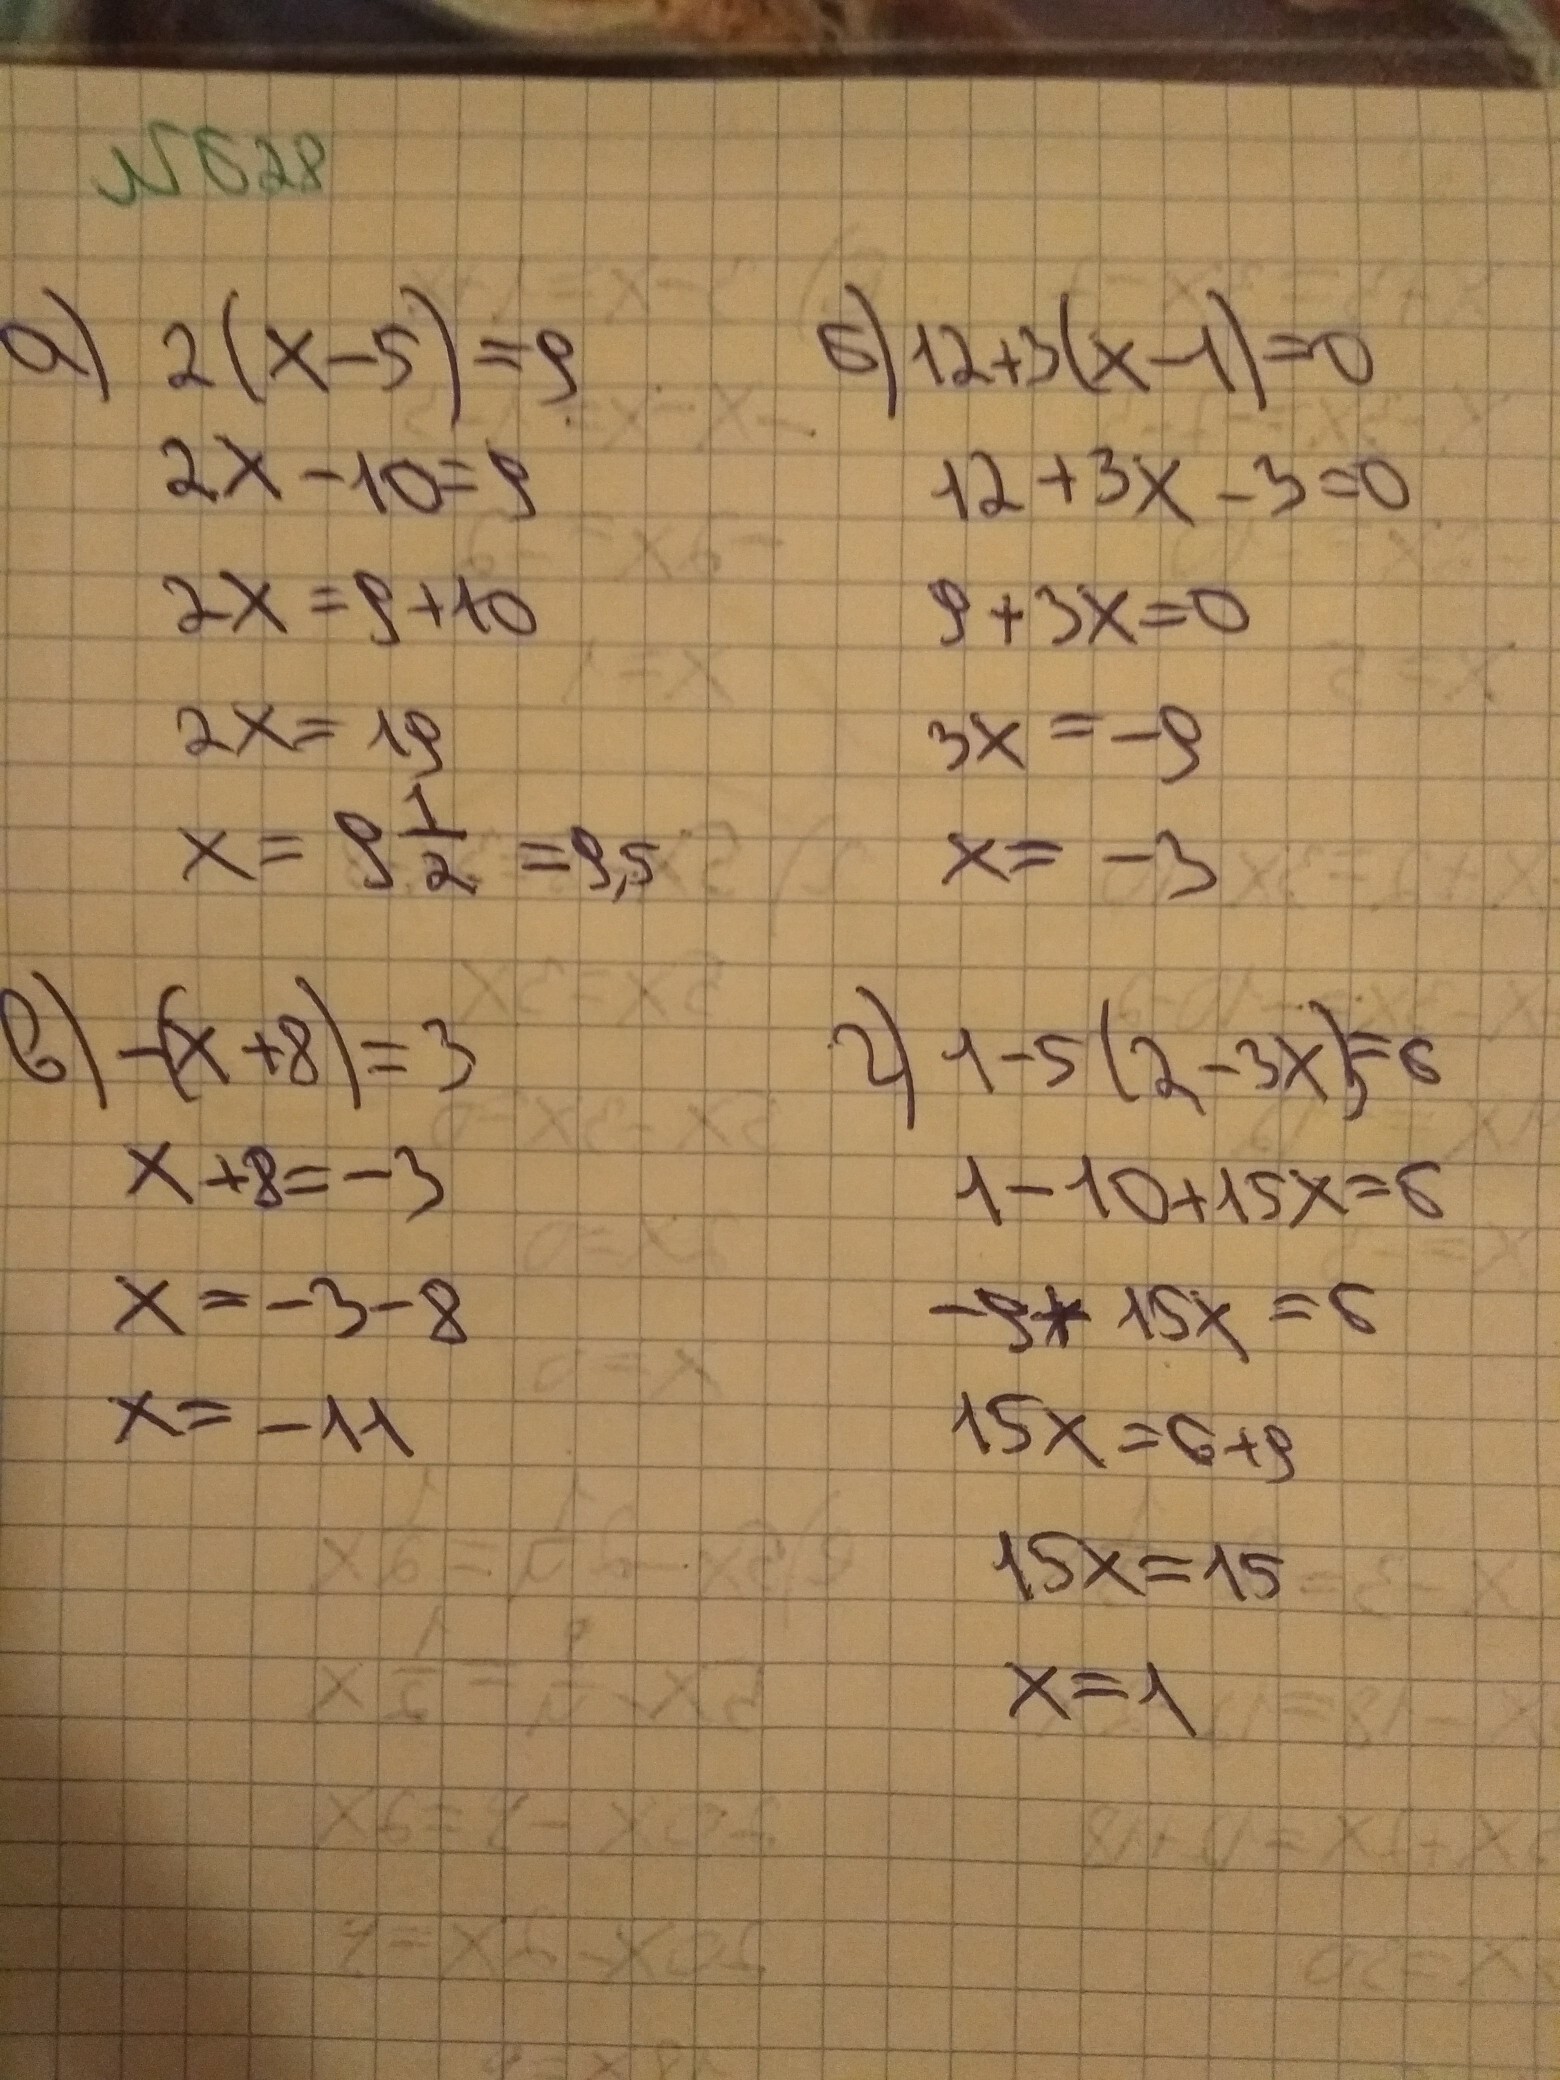 №628
а) 2(x-5)=9
2x-10=9
2x=9+10
2x=19
x=9 1/2 =9,5
б) 12+3(x-1)=0
12+3x-3=0
9+3x=0
3x=-9
x=-3
в) -(x+8)=3
x+8=-3
x=-3-8
x=-11
г) 1-5(2-3x)=6
1-10+15x=6
-9+15x=6
15x=6+9
15x=15
x=1